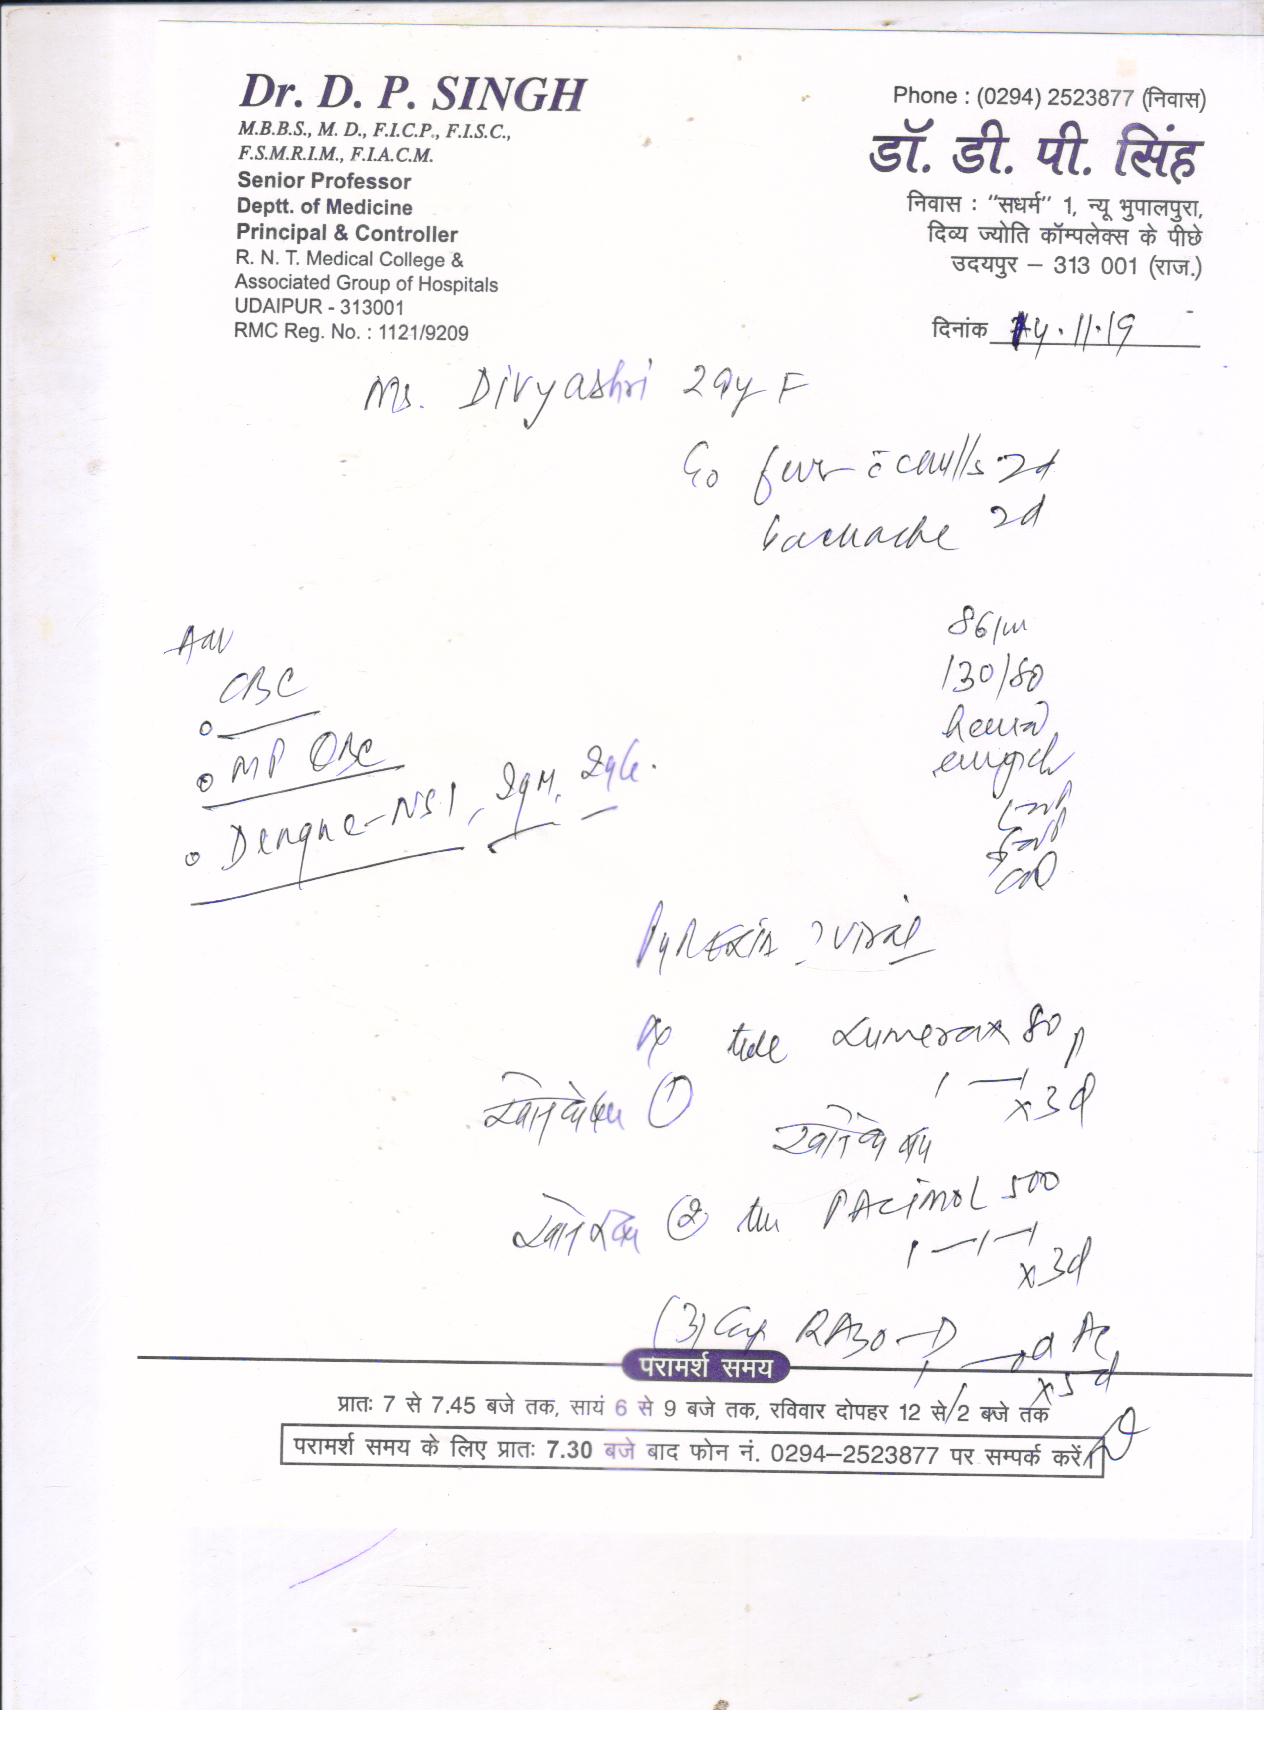 Dr. D. P. SINGH
M.B.B.S., M. D., F.I.C.P., F.I.S.C.,
F.S.M.R.I.M., F.I.A.C.M.
Senior Professor
Deptt. of Medicine
Principal & Controller
R. N. T. Medical College &
Associated Group of Hospitals
UDAIPUR - 313001
RMC Reg. No. : 1121/9209
Phone : (0294) 2523877 (निवास)
डॉ. डी. पी. सिंह
निवास : "सधर्म" 1, न्यू भुपालपुरा,
दिव्य ज्योति कॉम्पलेक्स के पीछे
उदयपुर – 313 001 (राज.)
दिनांक 14.11.19
Ms. Divyashri 29y F
C/o fever c chills 2d
backache 2d
Adv
CBC
MP QBC
Dengue-NS1, IgM, IgG.
86/m
130/80
PyREXIA ? VIRAL
Rx
① Lumerax 80
1—1
x3d
खाने के बाद
② PACIMOL 500
1—1—1
x3d
(3) Cap RABO-D
1—od AC
x5d
परामर्श समय
प्रातः 7 से 7.45 बजे तक, सायं 6 से 9 बजे तक, रविवार दोपहर 12 से 2 बजे तक
परामर्श समय के लिए प्रातः 7.30 बजे बाद फोन नं. 0294–2523877 पर सम्पर्क करें।